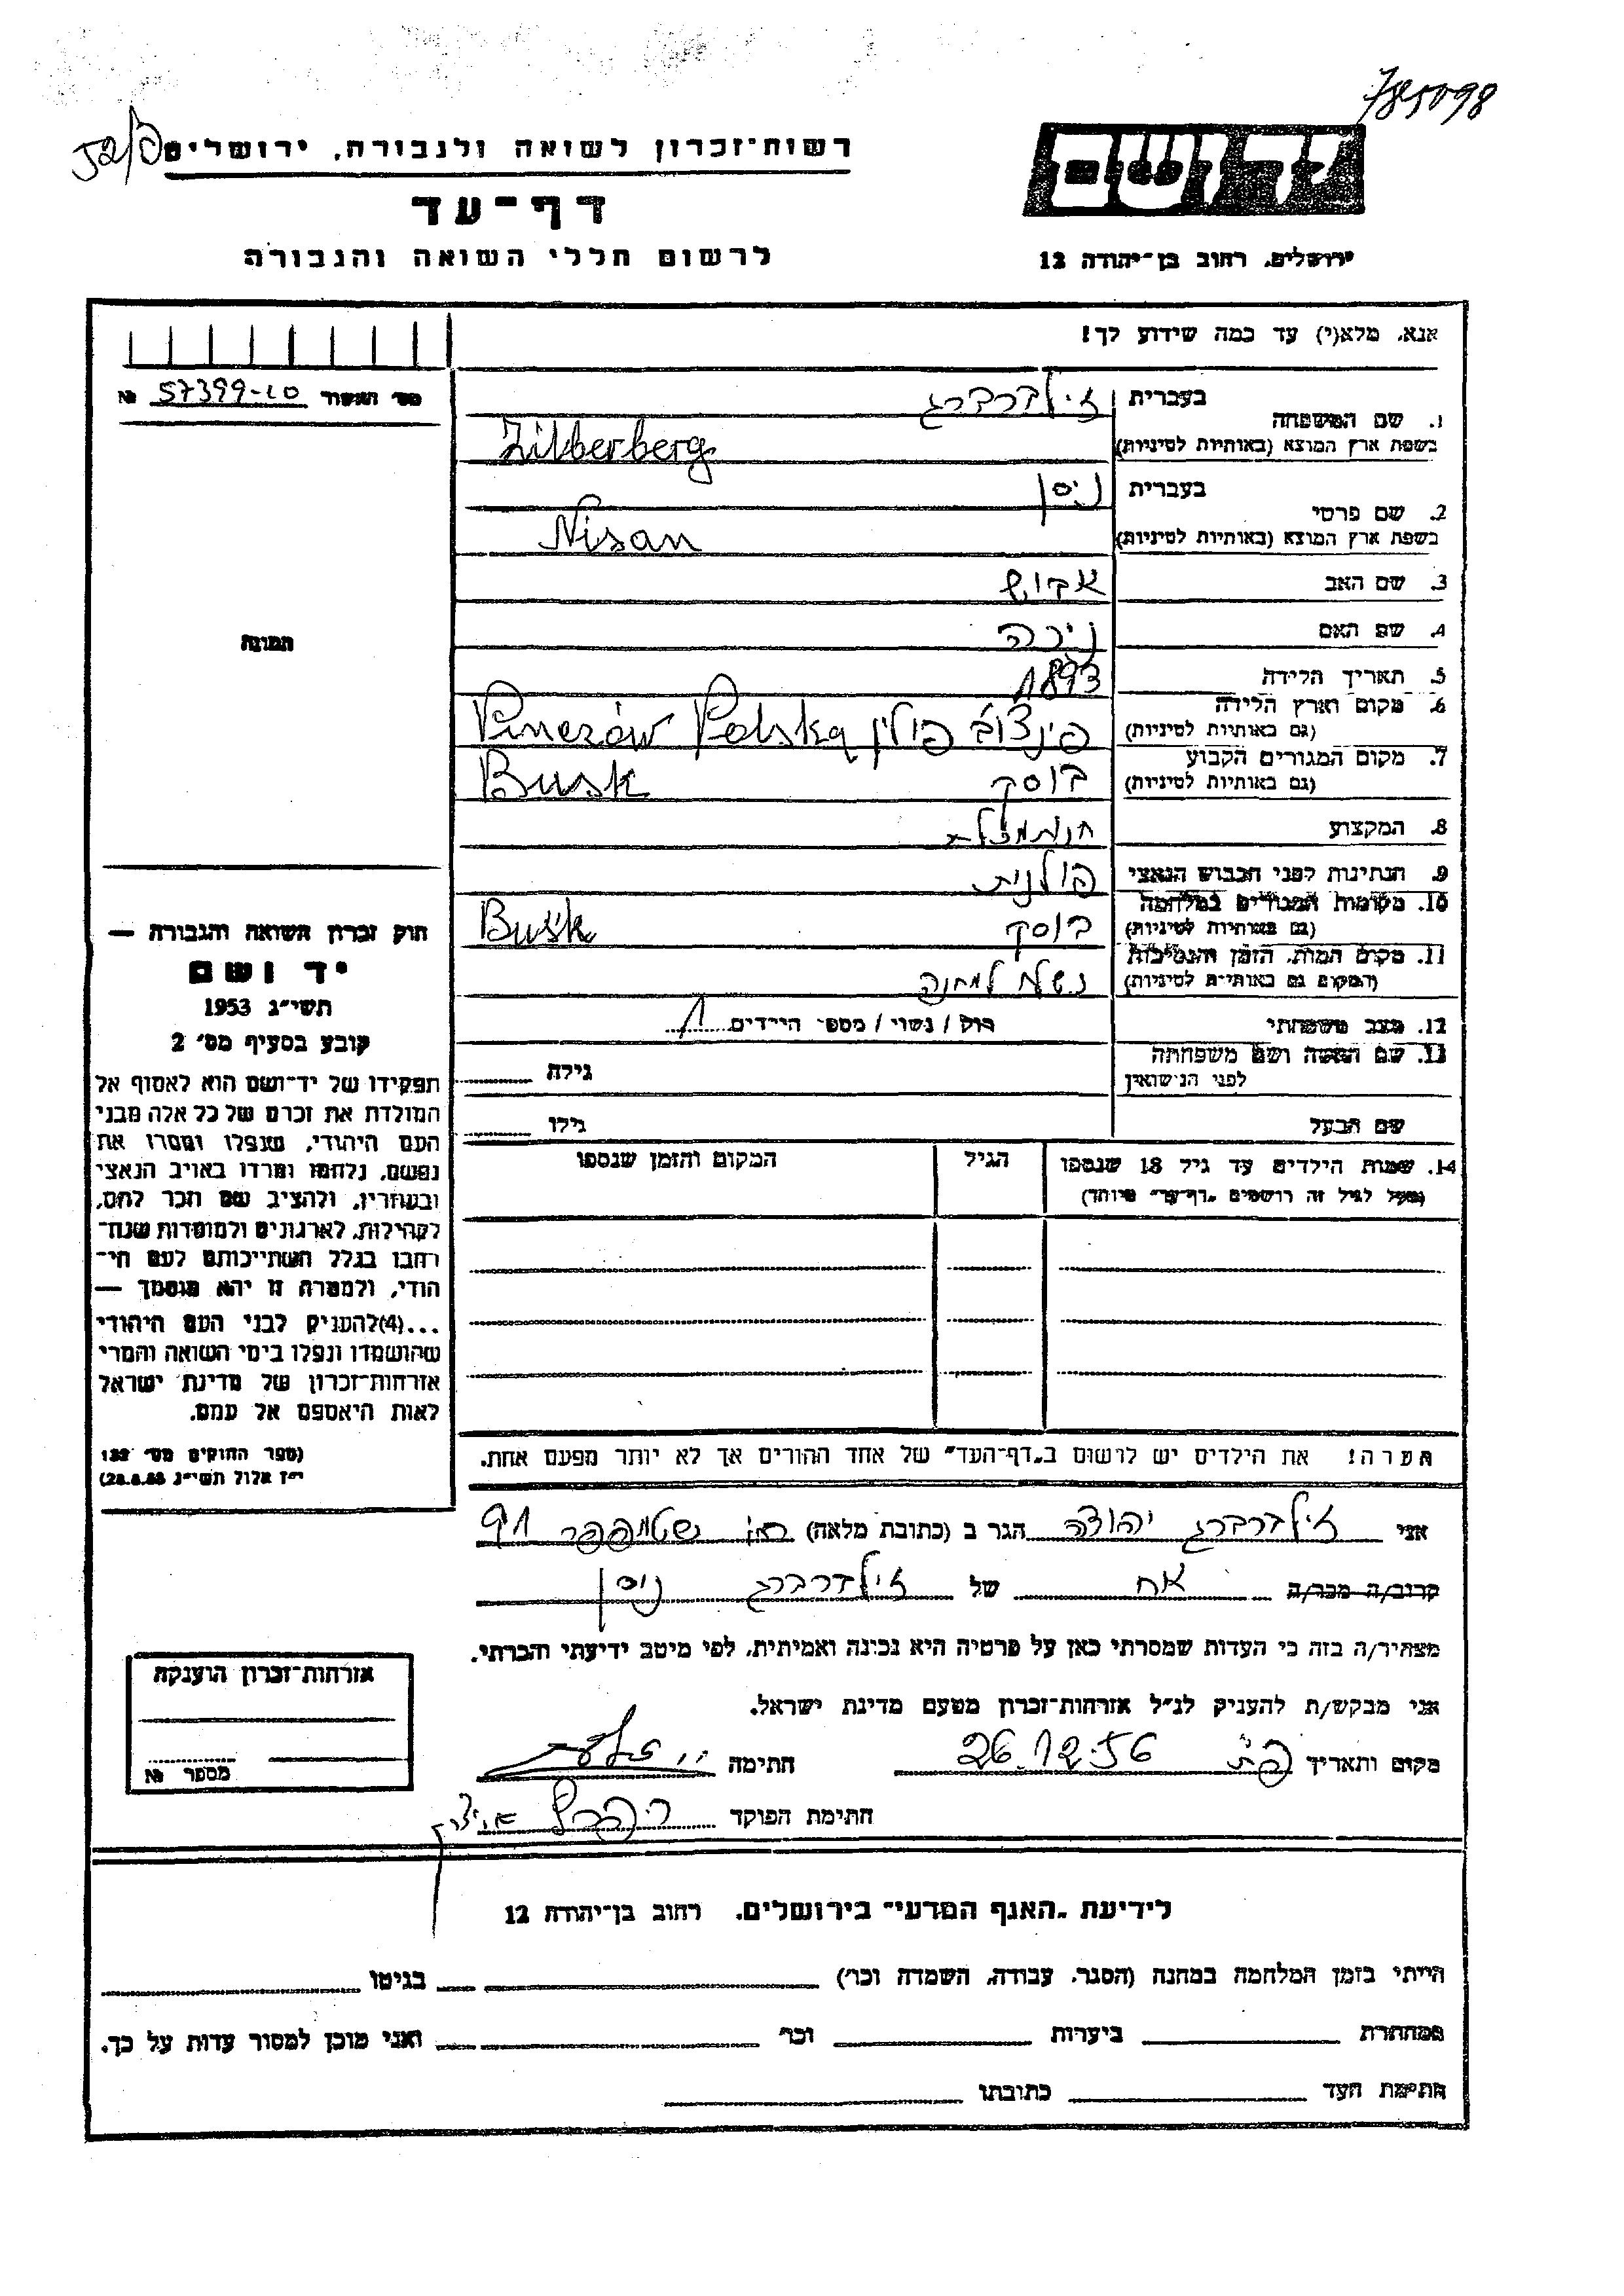 785098
52/פ
רשות־זכרון לשואה ולגבורה, ירושלים
יד ושם
דף־עד
לרשום חללי השואה והגבורה
ירושלים, רחוב בן־יהודה 12
אנא, מלא(י) עד כמה שידוע לך!
מס' האשור 57399-10 №
1. שם המשפחה
בעברית זילברברג
בשפת ארץ המוצא (באותיות לטיניות) Zilberberg
2. שם פרטי
בעברית ניסן
בשפת ארץ המוצא (באותיות לטיניות) Nisan
3. שם האב
4. שם האם
תמונה
5. תאריך הלידה 1893
6. מקום וארץ הלידה
(גם באותיות לטיניות) פינצוב פולין Pinczów Polska
7. מקום המגורים הקבוע
(גם באותיות לטיניות) בוסק Busk
8. המקצוע
9. הנתינות לפני הכבוש הנאצי פולנית
10. מקומות המגורים במלחמה
(גם באותיות לטיניות) בוסק Busk
11. מקום המות, הזמן והנסיבות
(המקום גם באותיות לטיניות) נשלח למחנה
12. מצב משפחתי רווק / נשוי / מספר הילדים 1
13. שם האשה ושם משפחתה
לפני הנישואין גילה
שם הבעל גילו
14. שמות הילדים עד גיל 18 שנספו הגיל המקום והזמן שנספו
(מעל לגיל זה רושמים „דף־עד” מיוחד)
חוק זכרון השואה והגבורה —
יד ושם
תשי״ג 1953
קובע בסעיף מס' 2
תפקידו של יד־ושם הוא לאסוף אל
המולדת את זכרם של כל אלה מבני
העם היהודי, שנפלו ומסרו את
נפשם, נלחמו ומרדו באויב הנאצי
ובעוזריו, ולהציב שם וזכר להם,
לקהילות, לארגונים ולמוסדות שנח־
רבו בגלל השתייכותם לעם הי־
הודי, ולמטרה זו יהא מוסמך —
...(4)להעניק לבני העם היהודי
שהושמדו ונפלו בימי השואה והמרי
אזרחות־זכרון של מדינת ישראל
לאות היאספם אל עמם.
(ספר החוקים מס' 132
י״ז אלול תשי״ג 28.8.53)
הערה! את הילדים יש לרשום ב„דף־העד” של אחד ההורים אך לא יותר מפעם אחת.
אני זילברברג יהודה הגר ב (כתובת מלאה) שטמפפר 91
קרוב/ה מכר/ה אח של זילברברג ניסן
מצהיר/ה בזה כי העדות שמסרתי כאן על פרטיה היא נכונה ואמיתית, לפי מיטב ידיעתי והכרתי.
אני מבקש/ת להעניק לנ״ל אזרחות־זכרון מטעם מדינת ישראל.
מקום ותאריך פ״ת 26.12.56 חתימה
חתימת הפוקד
אזרחות־זכרון הוענקה
מספר №
לידיעת „האגף המדעי” בירושלים, רחוב בן־יהודה 12
הייתי בזמן המלחמה במחנה (הסגר, עבודה, השמדה וכו') בגיטו
במחתרת ביערות וכו' ואני מוכן למסור עדות על כך.
חתימת העד כתובתו